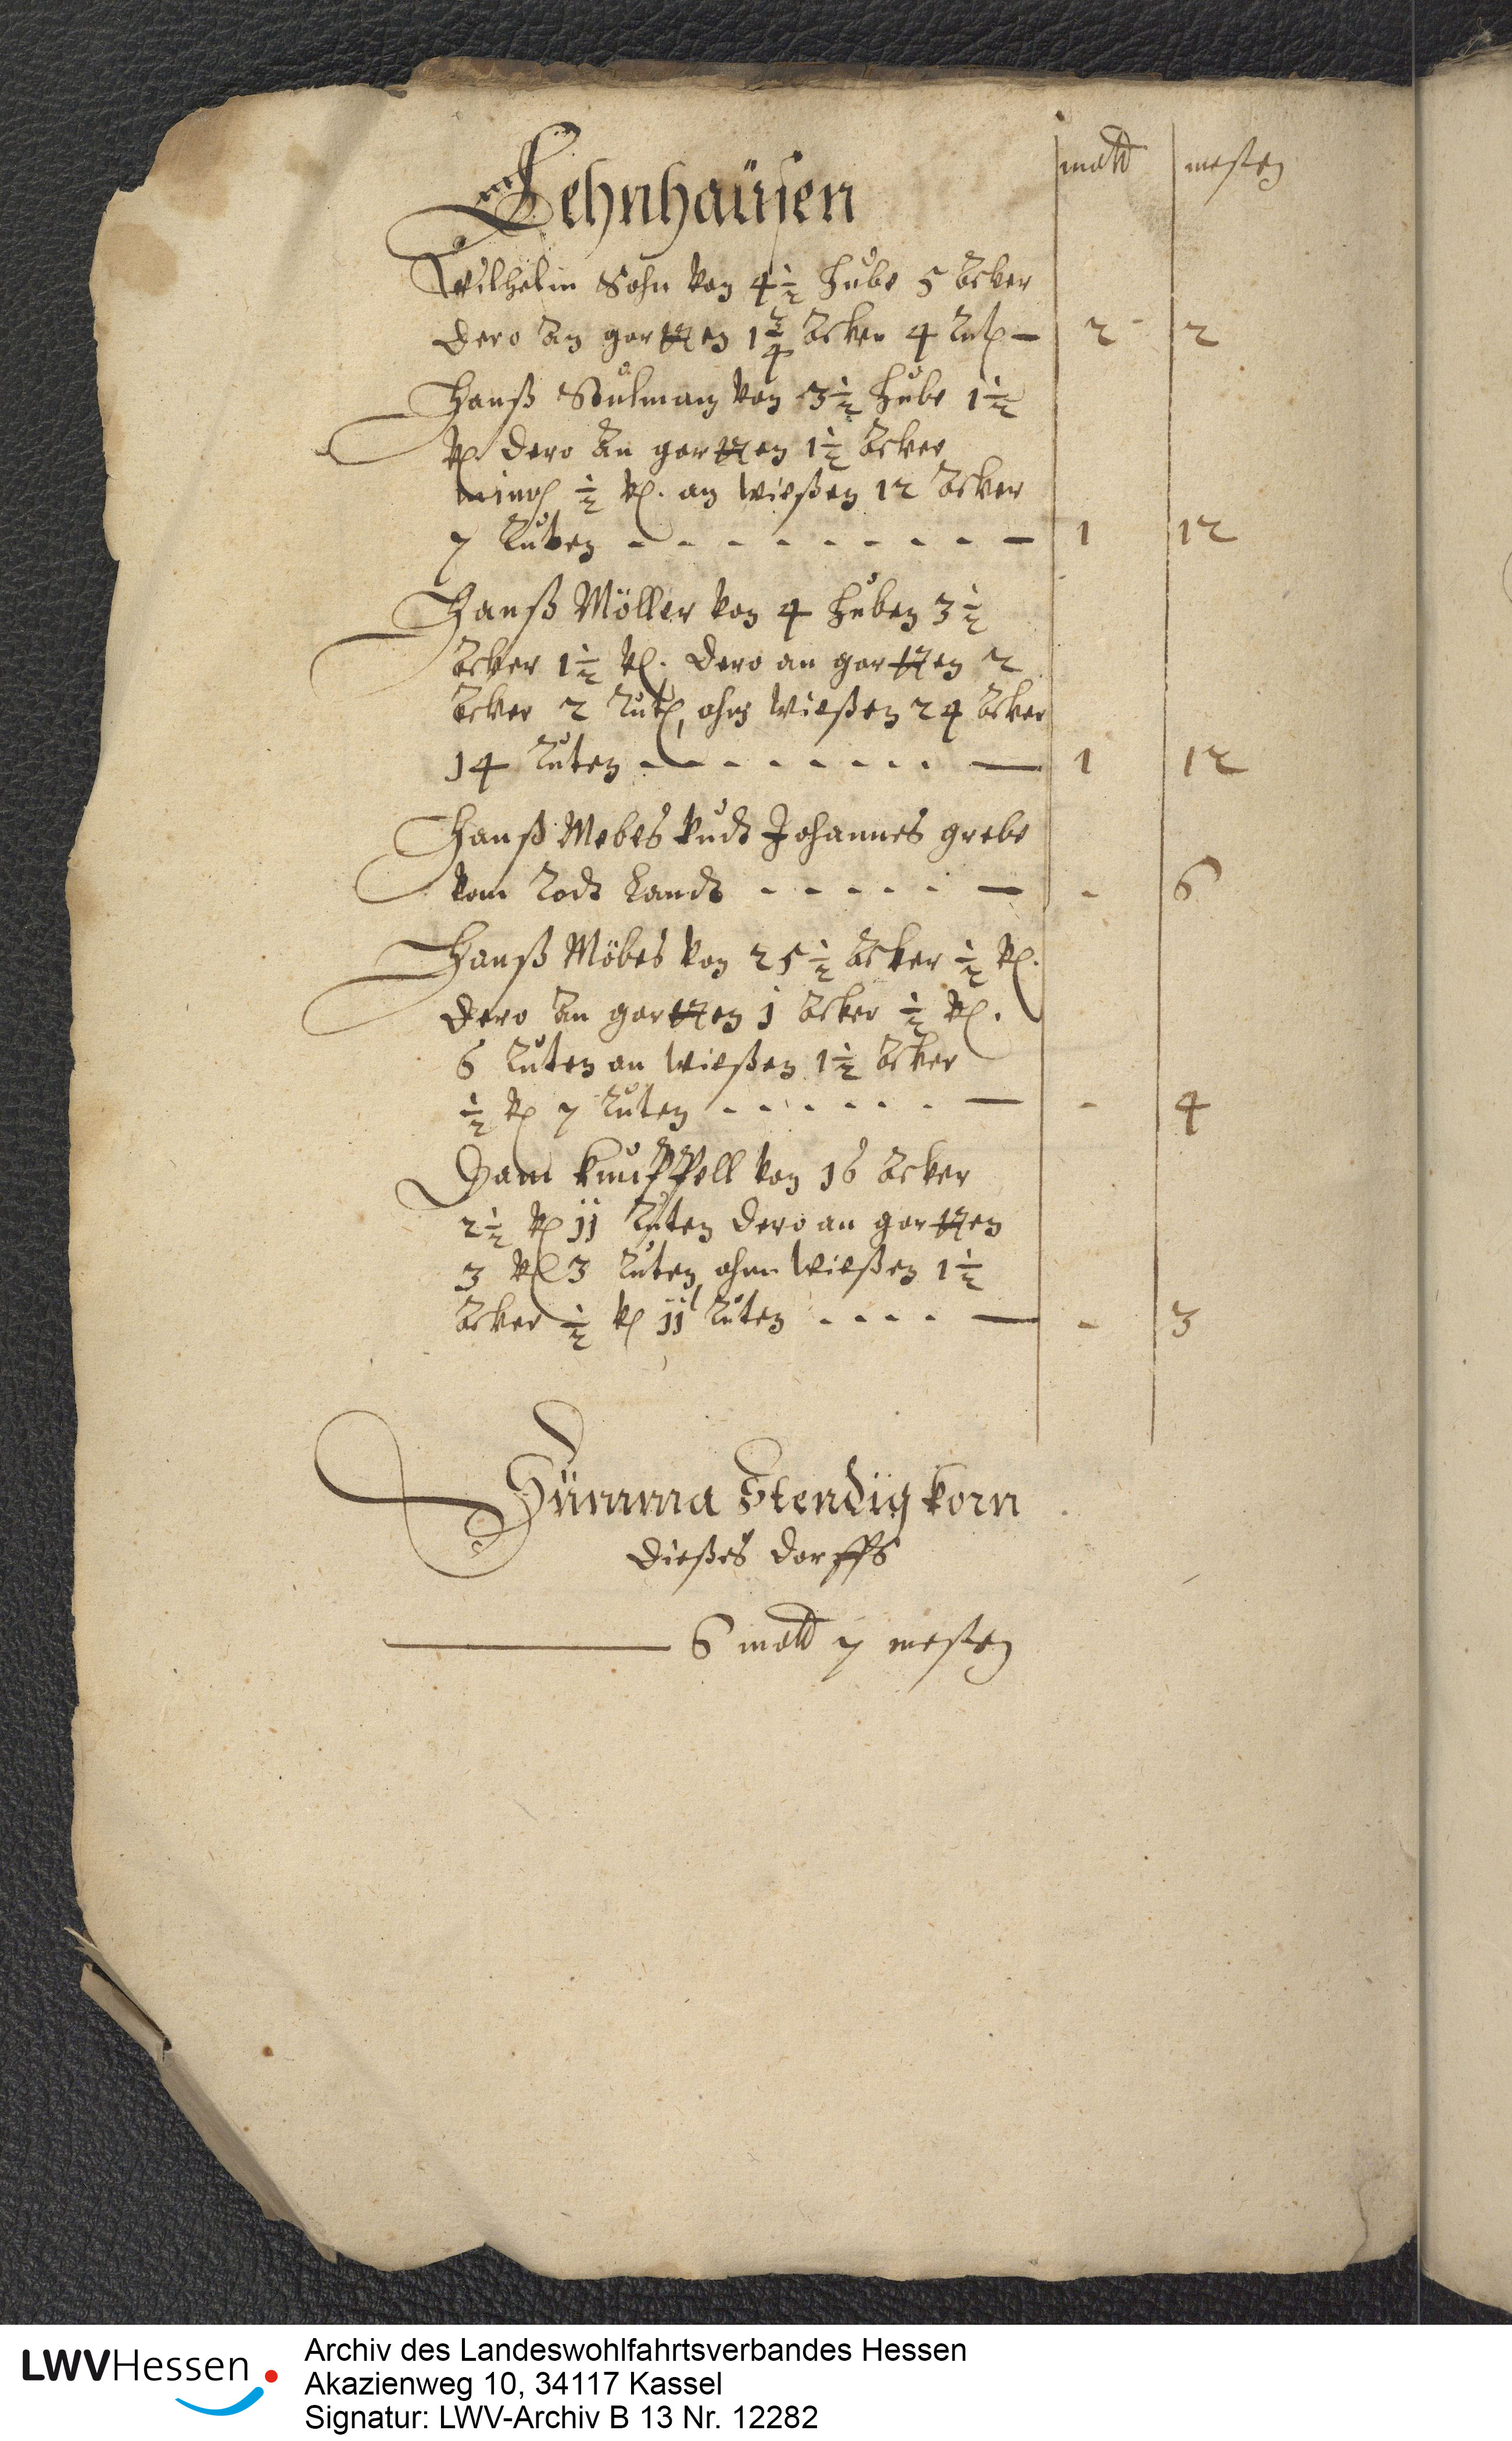 Lehnhaüsen
malt meßen
Wilhelm Sohn von 4½ hube 5 Acker
dero An gartten 1¾ Acker 4 Rut. — 2 2
Hanß Stulman von 3½ hube 1½
vl. dero An gartten 1½ Acker
minꝰ ½ vl. an wießen 12 Acker
7 Ruten - - - - - - - - — 1 12
Hanß Möller von 4 huben 3½
Acker 1½ vl. dero an gartten 2
Acker 2 Rut., ahn wießen 24 Acker
14 Ruten - - - - - - - — 1 12
Hanß Mebes undt Johannes grebe
vom Rodt Landt - - - - - — - 6
Hanß Möbes von 25½ Acker ½ vl.
dero An gartten 1 Acker ½ vl.
6 Ruten an wießen 1½ Acker
½ vl 7 Ruten - - - - - — - 4
von 16 Acker
2½ vl 11 Ruten dero an gartten
3 vl 3 Ruten, ahn wießen 1½
Acker ½ vl 11 Ruten - - - - — - 3
Summa Stendig korn
dießes dorffs
— 6 malt 7 meßen
LWVHessen
Archiv des Landeswohlfahrtsverbandes Hessen
Akazienweg 10, 34117 Kassel
Signatur: LWV-Archiv B 13 Nr. 12282